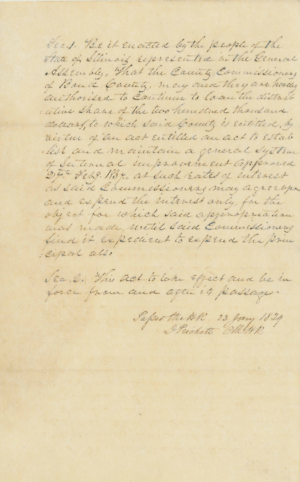 Sec 1. Be it enacted by the people of the
State of Illinois represented in the General
Assembly, That the County Commissioners
of Bond County, may and they are hereby
authorised to continue to loan the distrib
utive share of the two hundred thousand
dollars to which said County is entitled, by
virtue of an act entitled an act to estab
lish and maintain a general system
of Internal improvement approved
27th Feby. 1837. at such rates of interest
as said Commissioners may agree upon
and expend the interest only for the
object for which said appropriation
was made, until said Commissioners
find it expedient to expend the prin
cipal also.
Sec 2. This act to take effect and be in
force from and after its passage.
Passed the H.R. 23 Jany 1839
D Prickett Clk H R